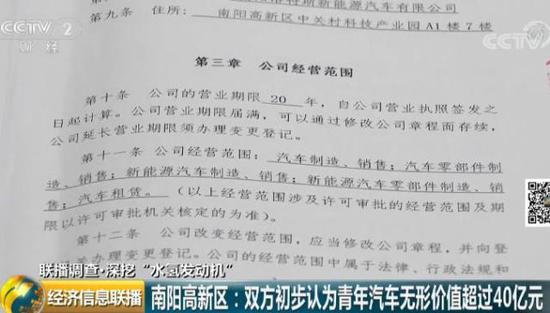 CCTV 2
财经
CCTV
新能源汽车有限公司
第九条 住所:南阳高新区中关村科技产业园A1楼7楼
第三章 公司经营范围
第十条 公司的营业期限 20 年,自公司营业执照签发之
日起计算。公司营业期限届满,可以通过修改公司章程而存续,
公司延长营业期限须办理变更登记。
第十一条 公司经营范围:汽车制造、销售;汽车零部件制
造、销售;新能源汽车制造、销售;新能源汽车零部件制造、销
售;汽车租赁。(以上经营范围涉及许可审批的经营范围及期
限以许可审批机关核定的为准)。
第十二条 公司改变经营范围,应当修改公司章程,并向登
办理变更登记。公司的经营范围中属于法律、行政法规和
联播调查·深挖“水氢发动机”
经济信息联播
南阳高新区:双方初步认为青年汽车无形价值超过40亿元